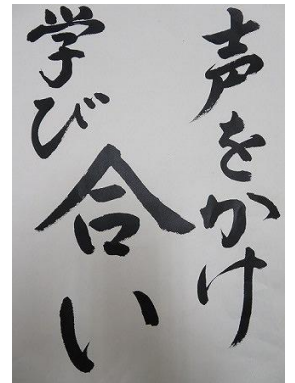 声をかけ
学び合い